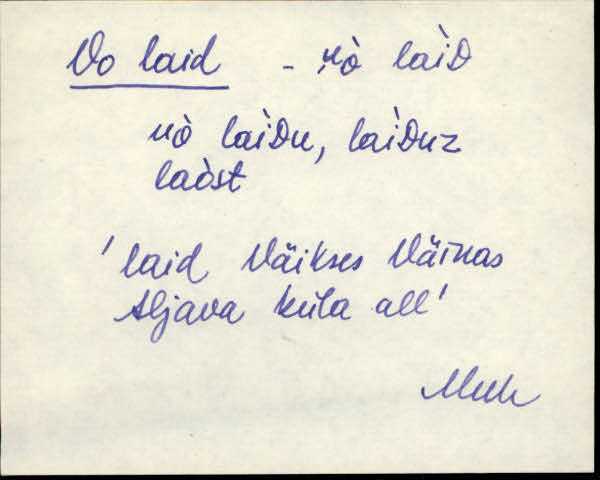 Vo laid - vò laìD
vò laìDu, laìDuz
laòst
'laid Väikses Väinas
Aljava küla all'
Muh